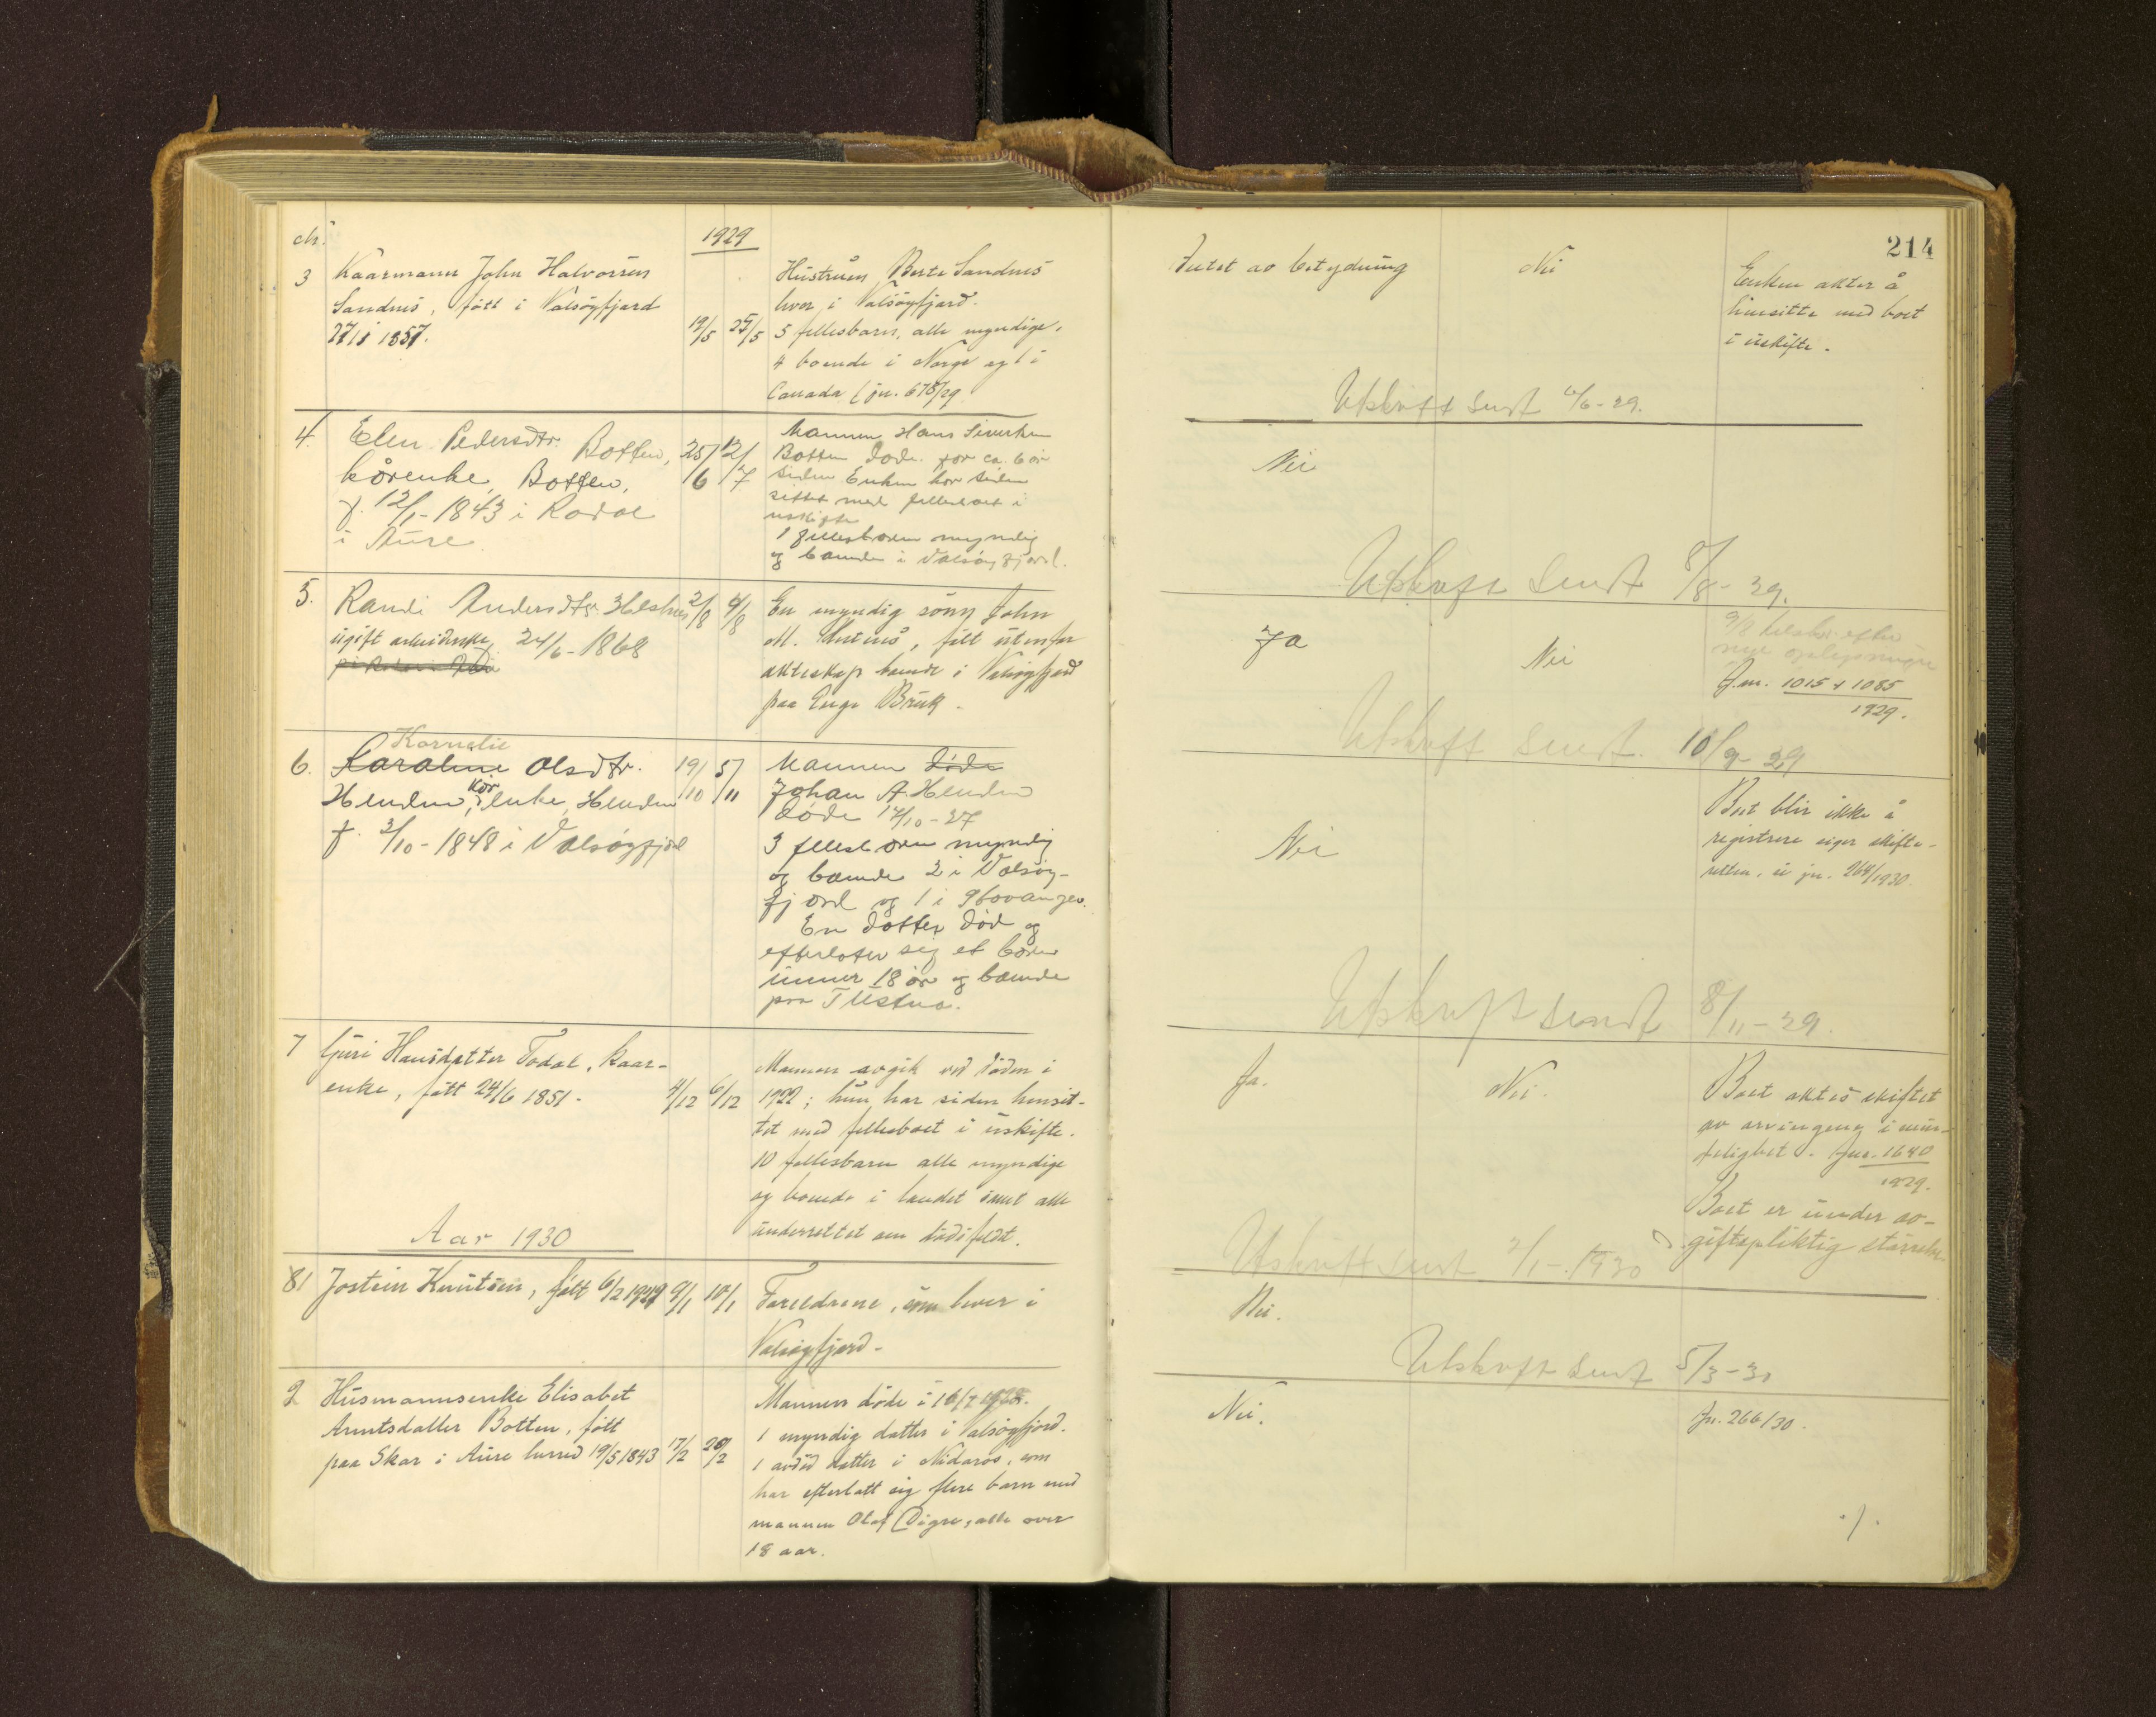 214
1929
nr.
3 Kaarmann John Halvorsen
Sandnes, født i Valsøyfjord
27/1 1857.
19/5 25/5
Hustruen Berte Sandnes
lever i Valsøyfjord.
5 fellesbarn, alle myndige,
4 boende i Norge og 1 i
Canada (jn. 675/29
Intet av betydning
Nei
Enken akter å
hensitte med boet
i uskifte.
Utskrift sendt 4/6-29.
4. Elen Pedersdtr. Botten,
kårenke, Botten,
f. 12/1-1843 i Rodal
i Aure
25/6 12/7
Mannen Hans Sivertsen
Botten døde for ca. 6 år
siden Enken har siden
sittet med fellesboet i
uskifte
1 fellesbarn myndig
og boende i Valsøyfjord.
Nei
Utskrift sendt 8/8-29.
5. Randi Andersdtr.
ugift arbeiderske 24/6-1868
2/8 4/8
En myndig sønn John
født utenfor
ekteskap boende i Valsøyfjord
paa Enge Bruk.
Ja
Nei
9/8 tilskr. efter
nye oplysninger
J.nr. 1015 + 1085
1929.
Utskrift sendt. 10/9-29
Kornelie
6. Karoline Olsdtr.
Henden, kårenke, Henden
f. 2/10-1848 i Valsøyfjord
19/10 5/11
Mannen døde
Johan A. Henden
døde 14/10-27
3 fellesbarn myndig
og boende 2 i Valsøy-
fjord og 1 i
En datter død og
efterlater sig et barn
under 18 år og boende
paa Tustna.
Nei
Boet blir ikke å
registrere siger skifte-
retten, se jn. 264/1930.
Utskrift sendt 8/11-29.
7 Guri Hansdatter Todal, kaar-
enke, født 24/6 1851.
4/12 6/12
Mannen avgik ved døden i
1922; hun har siden hensit-
tet med fellesboet i uskifte.
10 fellesbarn alle myndige
og boende i landet samt alle
underrettet om dødsfaldt.
Ja.
Nei.
Boet aktes skiftet
av arvingene i min-
delighet. Jnr. 1640
1929.
Boet er under av-
giftspliktig størrelse.
Utskrift sendt 2/1-1930
Aar 1930
1 Jostein Knutsen, født 6/2 1929
9/1 10/1
Foreldrene, som lever i
Valsøyfjord.
Nei.
Utskrift sendt 5/3-30
2 Husmannsenke Elisabet
Arntsdatter Botten, født
paa Skar i Aure herred 19/5 1843
17/2 20/2
Mannen døde i 16/7
1 myndig datter i Valsøyfjord.
1 avdød datter i Nidaros, som
har efterlatt sig flere barn med
mannen Olaf Digre, alle over
18 aar.
Nei.
Jn. 266/30.
./.